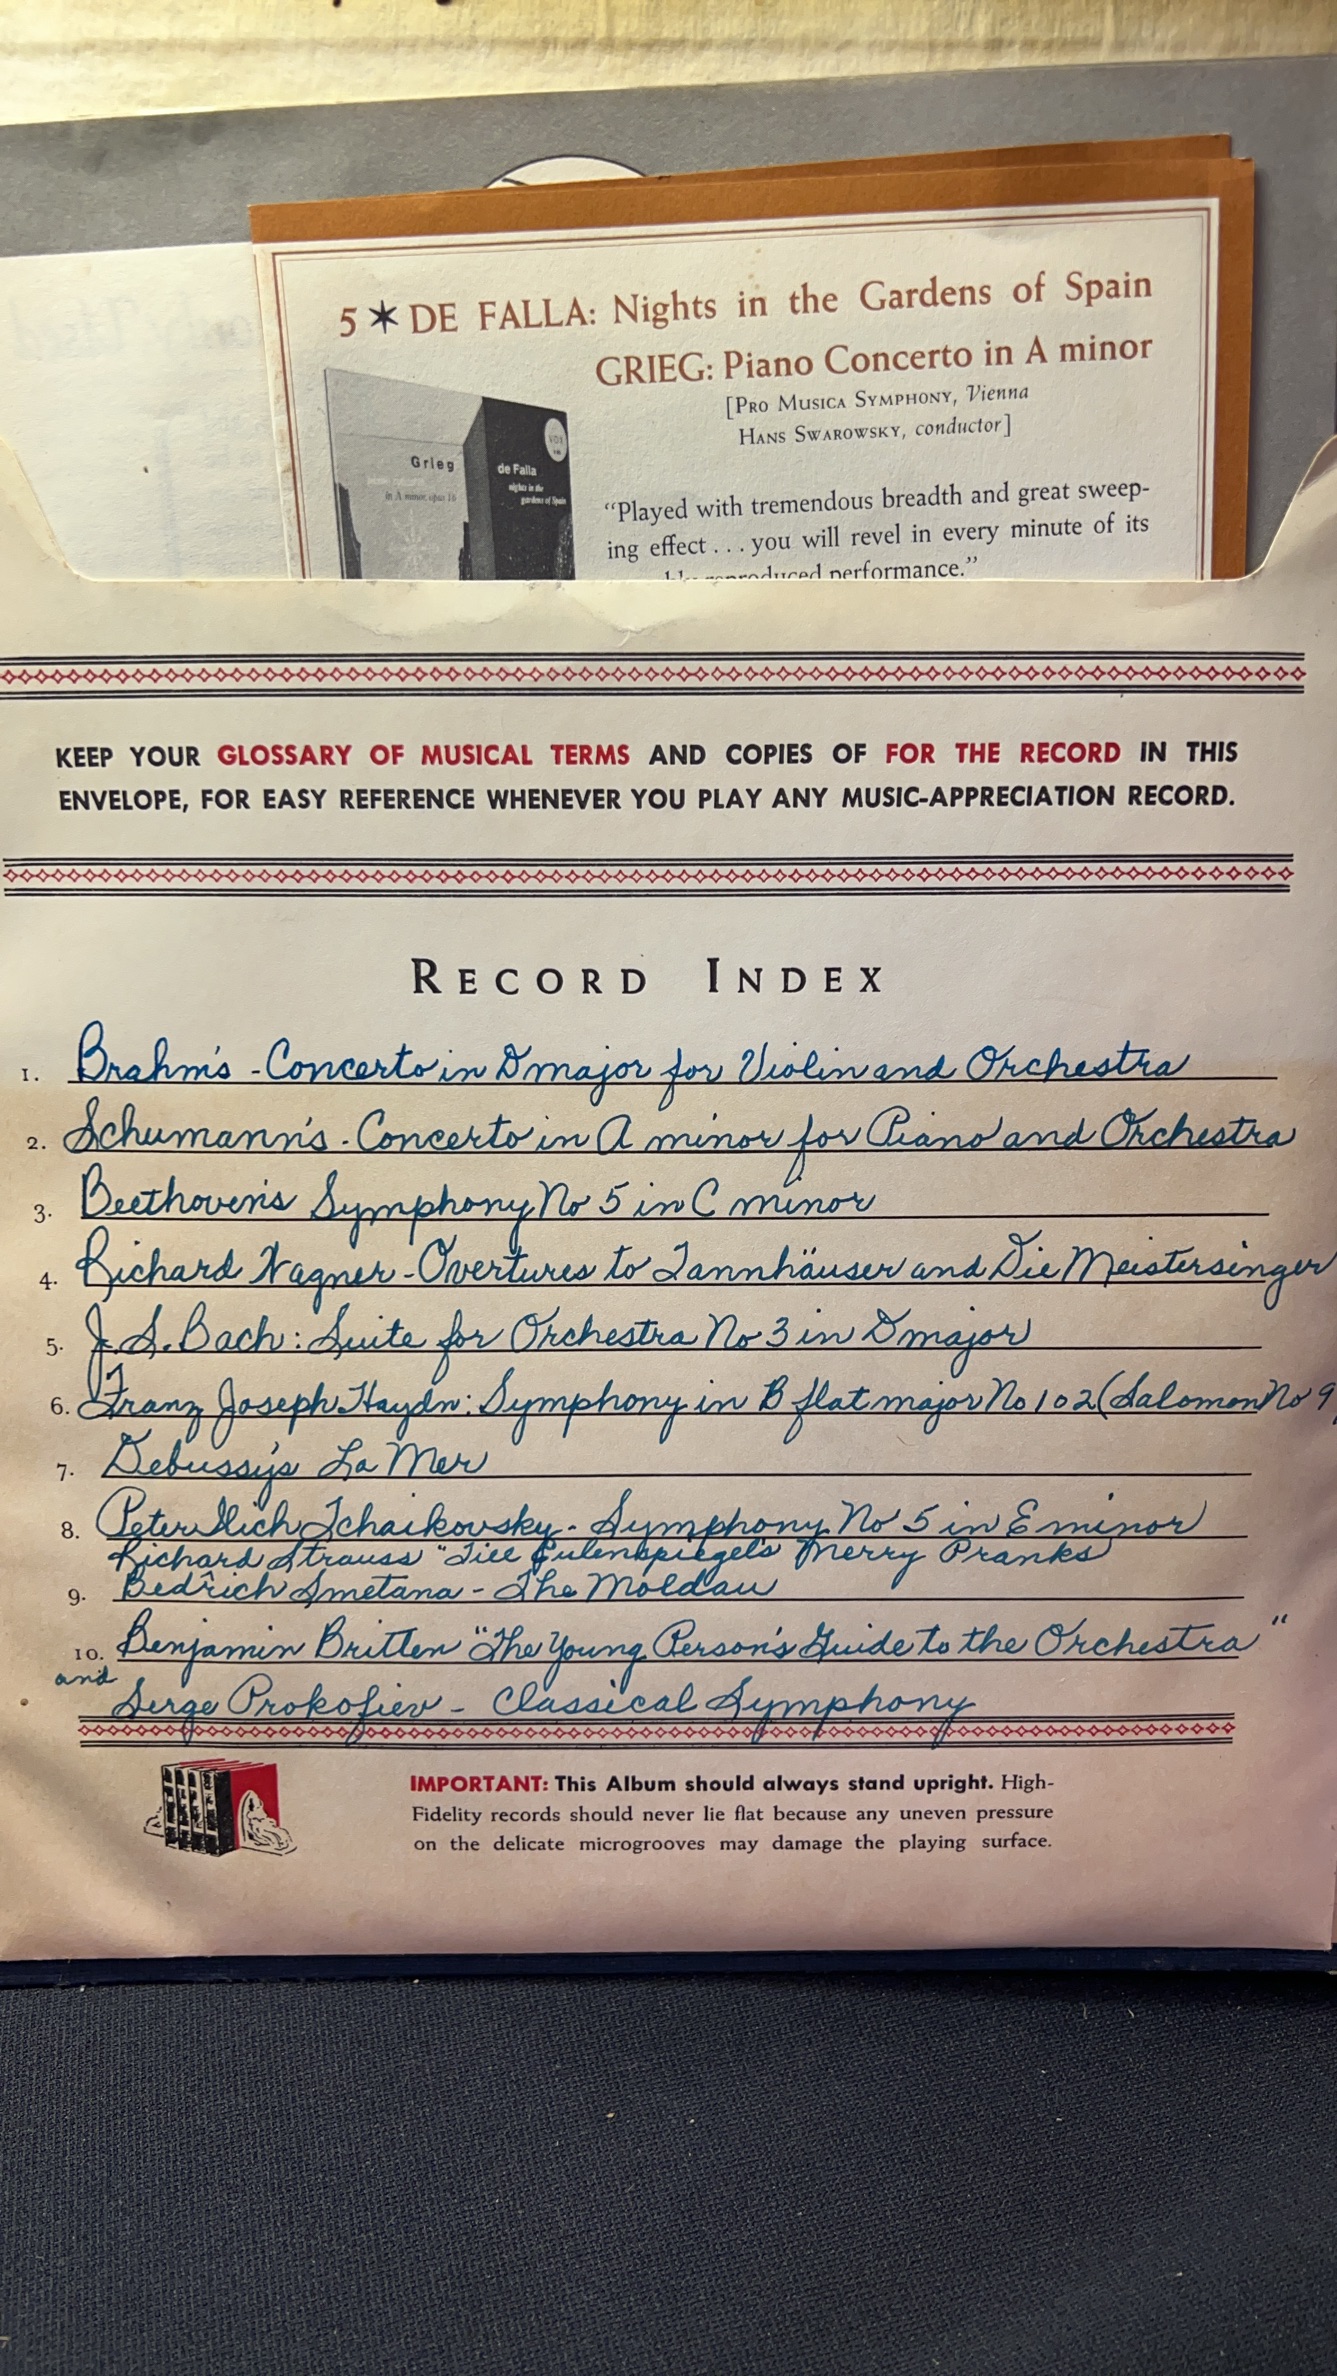 5 * DE FALLA: Nights in the Gardens of Spain
GRIEG: Piano Concerto in A minor
[PRO MUSICA SYMPHONY, Vienna
HANS SWAROWSKY, conductor]
Grieg
in A minor, opus 16
VOX
de Falla
nights in the
gardens of Spain
"Played with tremendous breadth and great sweep-
ing effect . . . you will revel in every minute of its
reproduced performance."
KEEP YOUR GLOSSARY OF MUSICAL TERMS AND COPIES OF FOR THE RECORD IN THIS
ENVELOPE, FOR EASY REFERENCE WHENEVER YOU PLAY ANY MUSIC-APPRECIATION RECORD.
RECORD INDEX
1. Brahm's - Concerto in D major for Violin and Orchestra
2. Schumann's - Concerto in A minor for Piano and Orchestra
3. Beethoven's Symphony No 5 in C minor
4. Richard Wagner - Overtures to Tannhäuser and Die Meistersinger
5. J. S. Bach: Suite for Orchestra No 3 in D major
6. Franz Joseph Haydn: Symphony in B flat major No 102 (Salomon No 9
7. Debussy's La Mer
8. Peter Ilich Tchaikovsky - Symphony No 5 in E minor
Richard Strauss "Till Eulenspiegel's Merry Pranks
9. Bedrich Smetana - The Moldau
10. Benjamin Britten "The Young Person's Guide to the Orchestra"
and
Serge Prokofiev - Classical Symphony
IMPORTANT: This Album should always stand upright. High-
Fidelity records should never lie flat because any uneven pressure
on the delicate microgrooves may damage the playing surface.